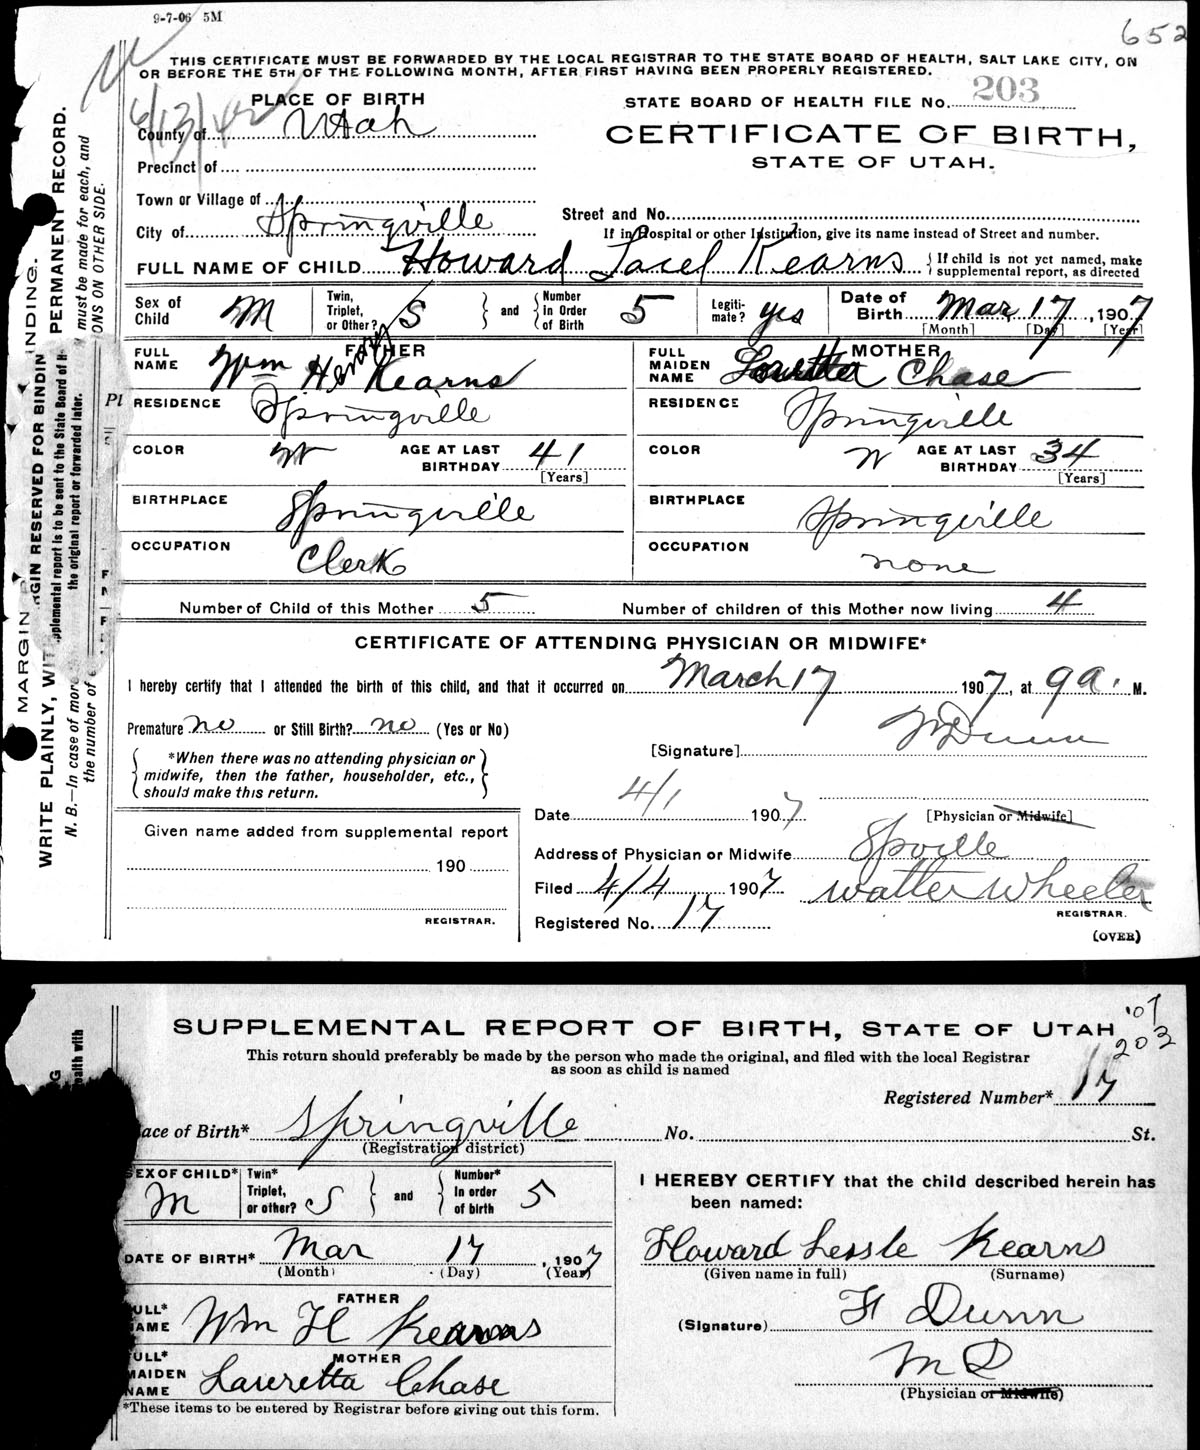 9-7-06 5M
652
THIS CERTIFICATE MUST BE FORWARDED BY THE LOCAL REGISTRAR TO THE STATE BOARD OF HEALTH, SALT LAKE CITY, ON
OR BEFORE THE 5TH OF THE FOLLOWING MONTH, AFTER FIRST HAVING BEEN PROPERLY REGISTERED.
PLACE OF BIRTH
STATE BOARD OF HEALTH FILE No. 203
County of Utah
CERTIFICATE OF BIRTH,
STATE OF UTAH.
Precinct of
Town or Village of
Street and No.
City of Springville
If in Hospital or other Institution, give its name instead of Street and number.
FULL NAME OF CHILD Howard Kearns { If child is not yet named, make supplemental report, as directed
Sex of Child M Twin, Triplet, or Other? S } and { Number in Order of Birth 5 Legitimate? yes Date of Birth Mar 17, 1907
[Month] [Day] [Year]
FATHER
FULL NAME Wm Henry Kearns
MOTHER
FULL MAIDEN NAME Lauretta Chase
RESIDENCE Springville
RESIDENCE Springville
COLOR W AGE AT LAST BIRTHDAY 41
[Years]
COLOR W AGE AT LAST BIRTHDAY 34
[Years]
BIRTHPLACE Springville
BIRTHPLACE Springville
OCCUPATION Clerk
OCCUPATION none
Number of Child of this Mother 5 Number of children of this Mother now living 4
CERTIFICATE OF ATTENDING PHYSICIAN OR MIDWIFE*
I hereby certify that I attended the birth of this child, and that it occurred on March 17 1907, at 9 a. M.
Premature no or Still Birth? no (Yes or No)
[Signature] Dunn
{ *When there was no attending physician or midwife, then the father, householder, etc., should make this return. }
Date 4/1 1907
[Physician or Midwife]
Given name added from supplemental report
190
REGISTRAR.
Address of Physician or Midwife Spville
Filed 4/4 1907 Walter Wheeler
REGISTRAR.
Registered No. 17
(OVER)
MARGIN RESERVED FOR BINDING.
WRITE PLAINLY, WITH PERMANENT RECORD.
N. B.—In case of more must be made for each, and
the number of ONS ON OTHER SIDE.
pplemental report is to be sent to the State Board of H
the original report or forwarded later.
'07
203
SUPPLEMENTAL REPORT OF BIRTH, STATE OF UTAH
This return should preferably be made by the person who made the original, and filed with the local Registrar
as soon as child is named
Registered Number* 17
ace of Birth* Springville No. St.
(Registration district)
SEX OF CHILD* M Twin* Triplet, or other? S } and { Number* In order of birth 5
DATE OF BIRTH* Mar 17, 1907
(Month) (Day) (Year)
FATHER
ULL* AME Wm H Kearns
MOTHER
ULL* MAIDEN NAME Lauretta Chase
*These items to be entered by Registrar before giving out this form.
I HEREBY CERTIFY that the child described herein has
been named:
Howard Lessle Kearns
(Given name in full) (Surname)
(Signature) H Dunn
M D
(Physician or Midwife)